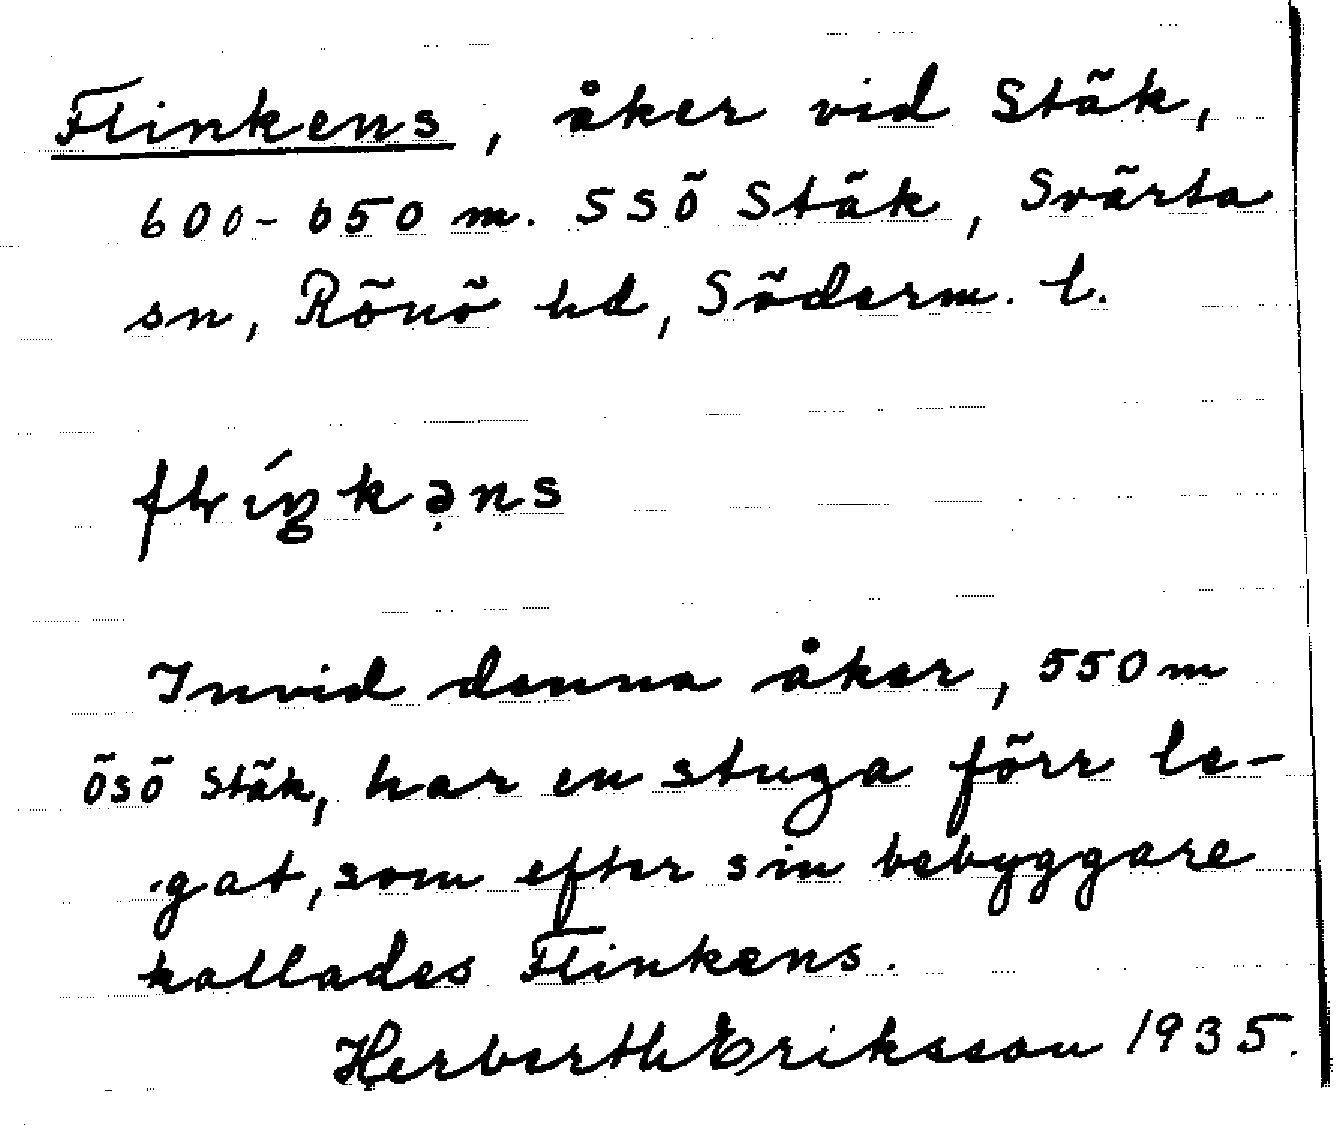 Flinkens, åker vid Stäk,
600-650 m. SSÖ Stäk, Svärta
sn, Rönö hd, Söderm. l.
flíŋkəns
Invid denna åker, 550 m
ÖSÖ Stäk, har en stuga förr le-
gat, som efter sin bebyggare
kallades Flinkens.
Herberth Eriksson 1935.